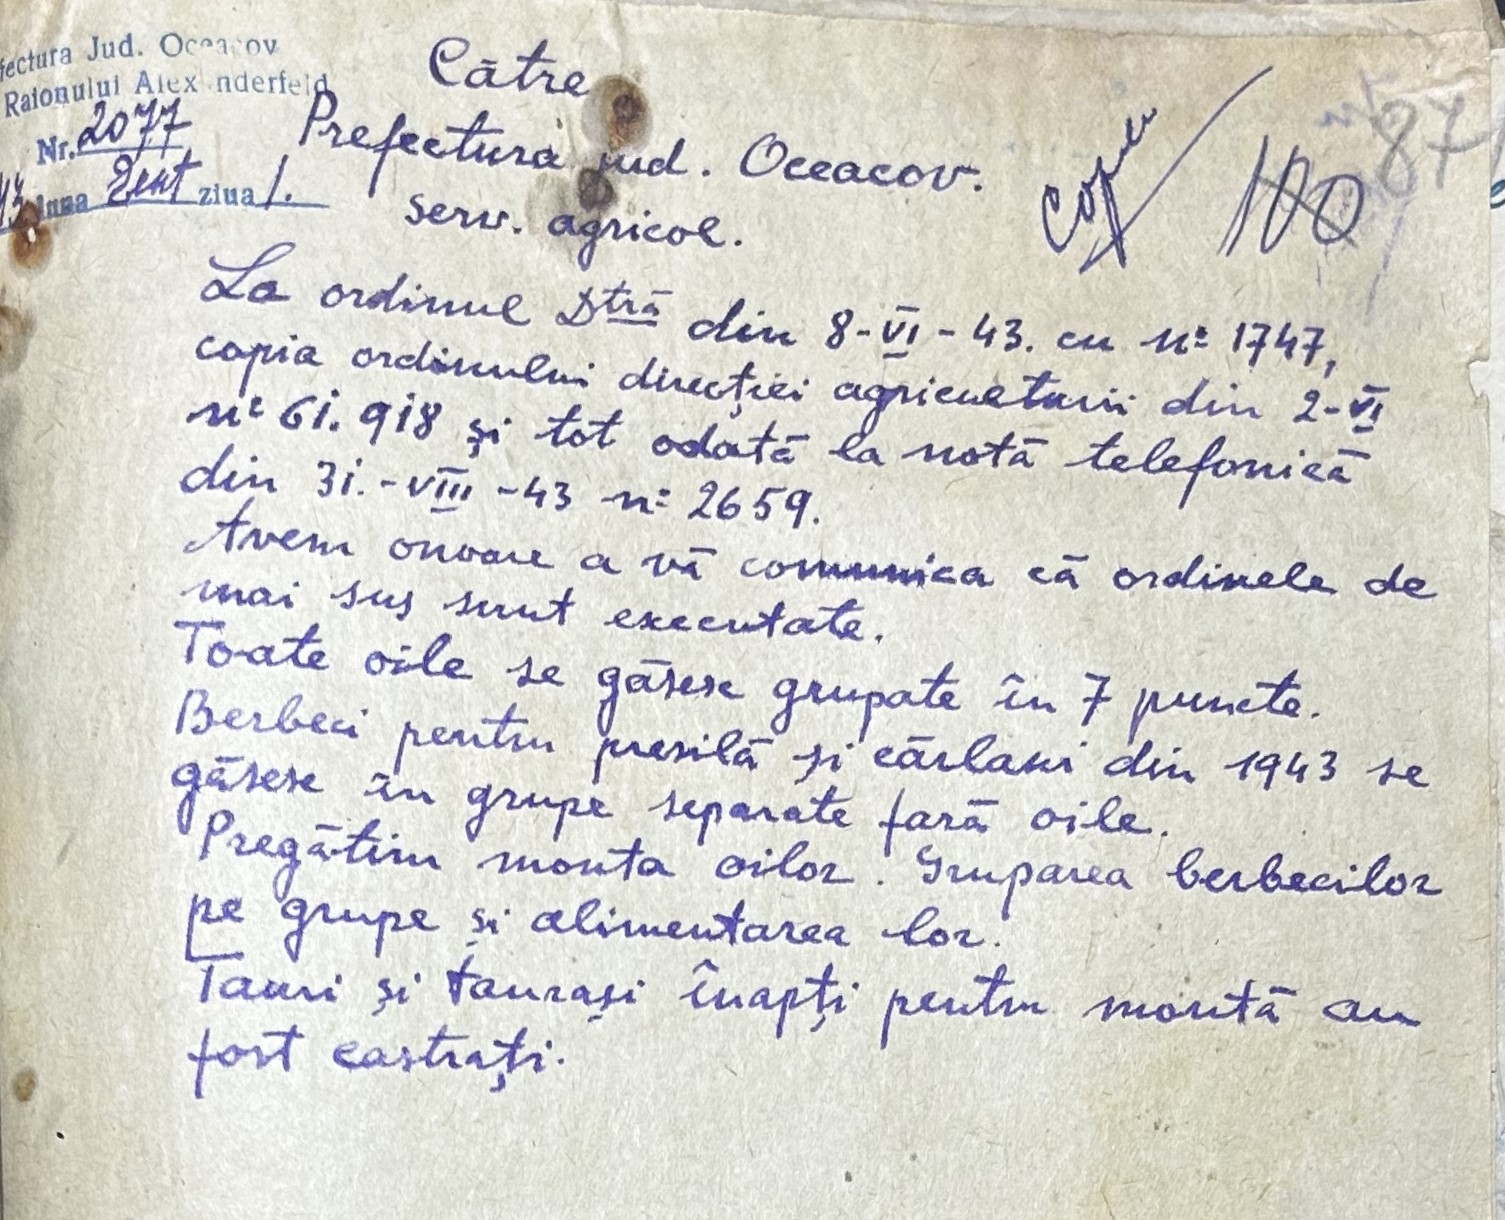 fectura Jud. Oceacov
Raionului Alexanderfeld
Nr. 2077
43 luna Sept ziua 1.
87
100
Către
Prefectura jud. Oceacov.
serv. agricol.
La ordinul Dtră din 8-VI-43. cu № 1747,
copia ordinului direcției agriculturii din 2-VI
№ 61.918 și tot odată la notă telefonică
din 31.-VIII-43 № 2659.
Avem onoare a vă comunica că ordinele de
mai sus sunt executate.
Toate oile se găsesc grupate în 7 puncte.
Berbeci pentru presilă și cârlani din 1943 se
găsesc în grupe separate fară oile.
Pregătim monta oilor. Gruparea berbecilor
pe grupe și alimentarea lor.
Tauri și taurași înapți pentru montă au
fost castrați.